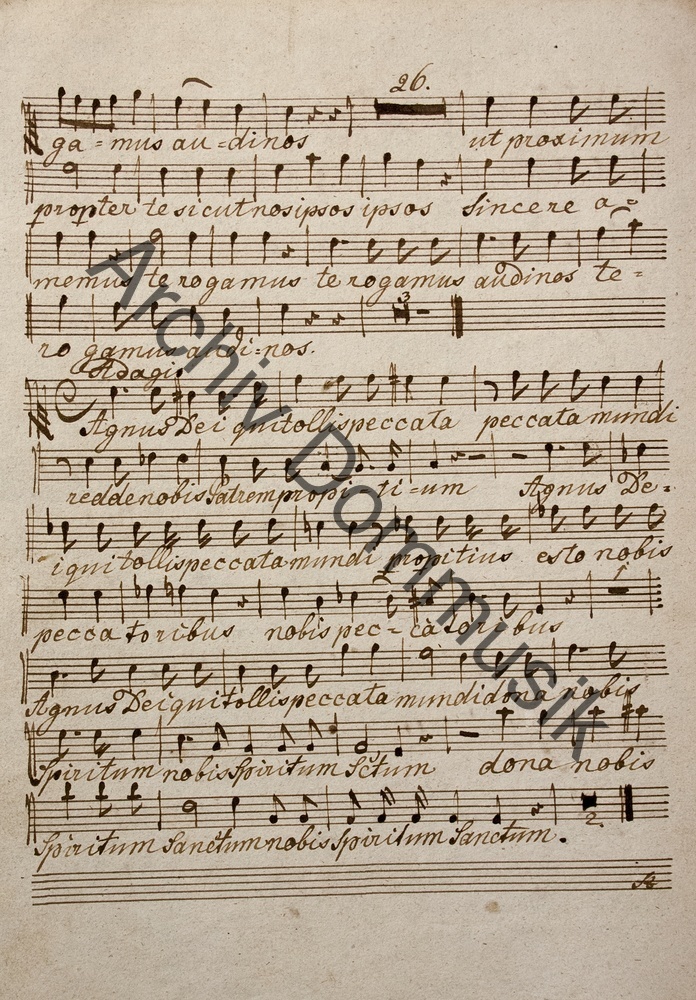 26.
ga = mus au = di nos ut proximum
propter te sicut nos ipsos ipsos sincere a =
memus te rogamus te rogamus audi nos te =
ro gamus audi = nos.
3
Adagio
Agnus Dei qui tollis peccata peccata mundi
redde nobis Patrem propi ti = um Agnus De =
i qui tollis peccata mundi propitius esto nobis
pecca toribus nobis pec = ca toribus
1
Agnus Dei qui tollis peccata mundi dona nobis
Spiritum nobis Spiritum Sctum dona nobis
Spiritum Sanctum nobis Spiritum Sanctum.
2.
Archiv Dommusik